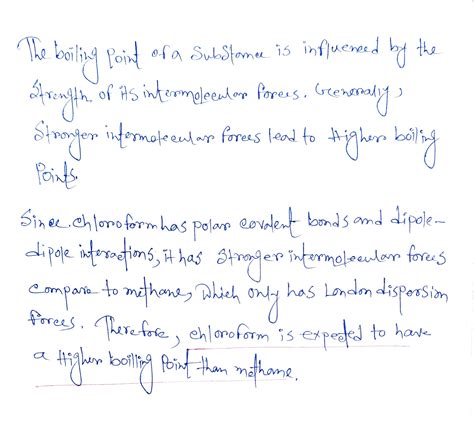 The boiling Point of a Substance is influenced by the
Strength of its intermolecular Forces. Generally,
Stronger intermolecular forces lead to Higher boiling
Points.
Since chloroform has polar covalent bonds and dipole-
dipole interactions, it has Stronger intermolecular forces
compare to methane, Which only has London dispersion
Forces. Therefore, chloroform is expected to have
a Higher boiling Point than methane.